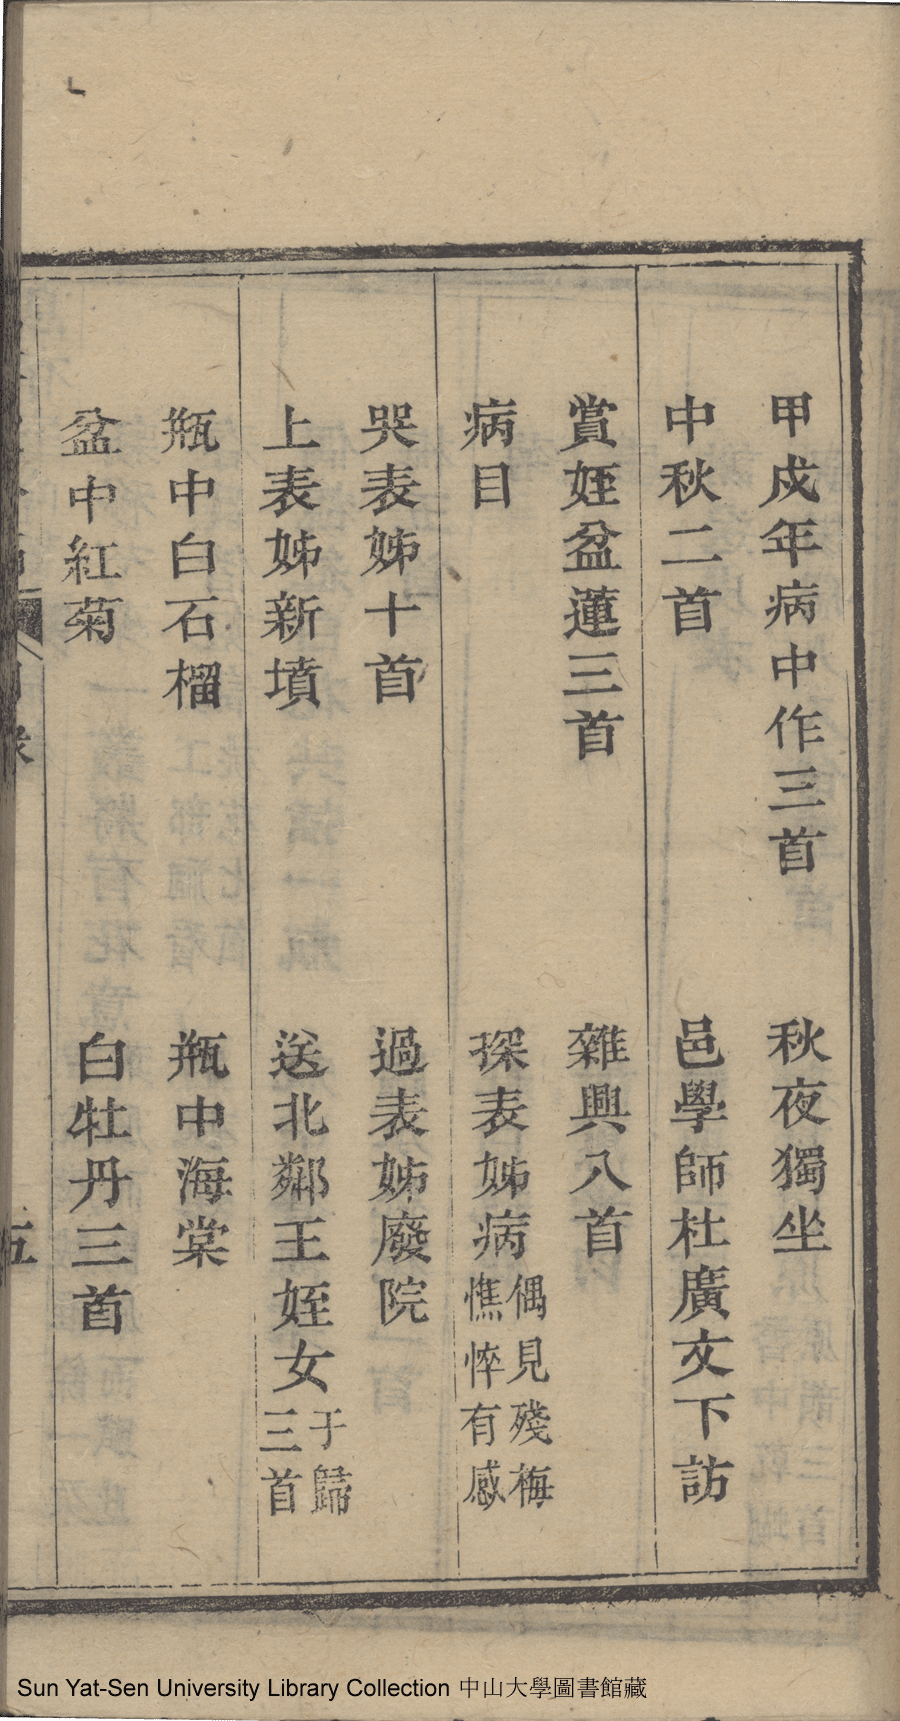 甲戍年病中作三首　秋夜獨坐
中秋二首　邑學師杜廣文下訪
賞姪盆蓮三首　雜興八首
病目　探表姊病偶見殘梅憔悴有感
哭表姊十首　過表姊廢院
上表姊新墳　送北鄰王姪女于歸三首
瓶中白石榴　瓶中海棠
盆中紅菊　白牡丹三首
五
Sun Yat-Sen University Library Collection 中山大學圖書館藏